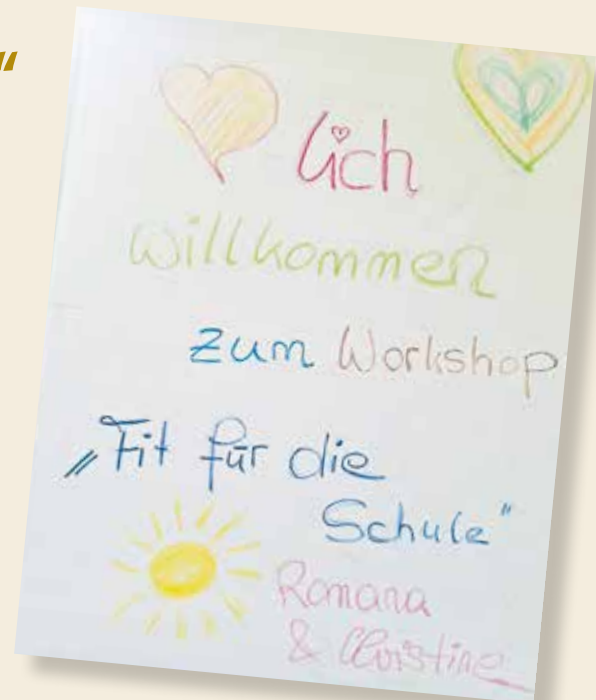 “
lich
willkommen
zum Workshop
„Fit für die
Schule"
Romana
& Christine